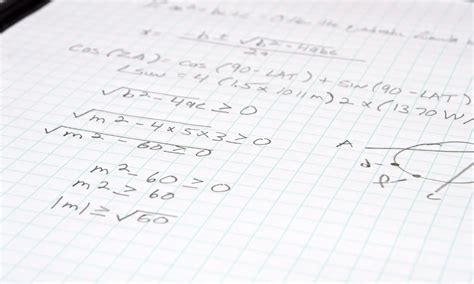 x = -b ± √b2-4abc
2a
cos(2A) = cos(90-LAT) + sin(90-LAT)
L sun = 4(1.5x1011m)2x(1370W
√b2-4ac ≥ 0
√m2-4x5x3 ≥ 0
√m2-60 ≥ 0
m2-60 ≥ 0
m2 ≥ 60
|m| ≥ √60
A
d
P
C